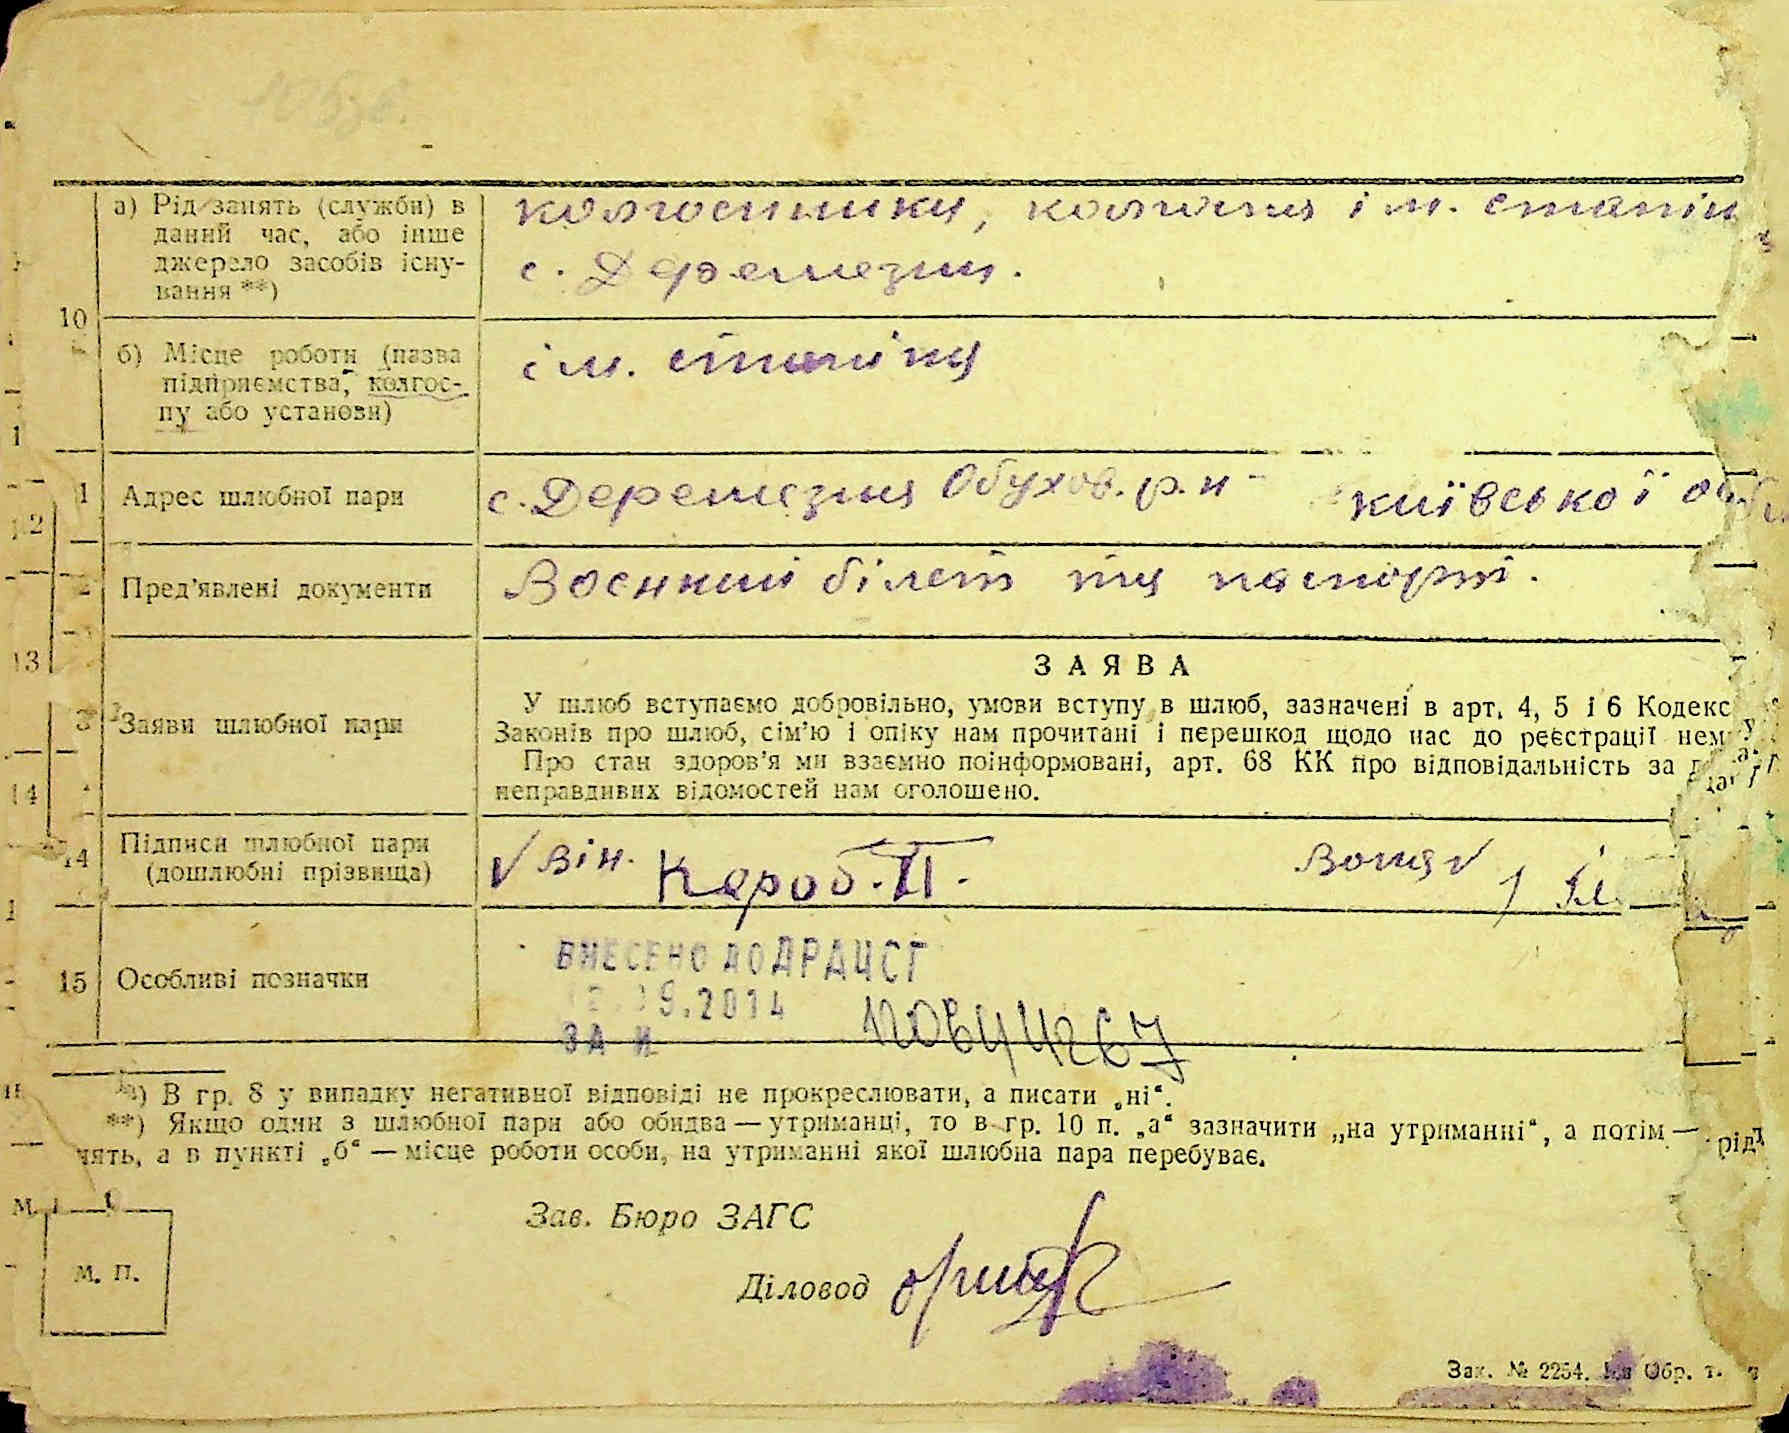 10
а) Рід занять (служби) в даний час, або інше джерело засобів існування **)
колгоспники, колгосп ім. сталін
с. Деремезна.
б) Місце роботи (назва підприємства, колгоспу або установи)
ім. сталіна
1 Адрес шлюбної пари
с. Деремезна Обухов. р.н - київської об
2 Пред'явлені документи
Воєнний білет та паспорт.
13
3 Заяви шлюбної пари
ЗАЯВА
У шлюб вступаємо добровільно, умови вступу в шлюб, зазначені в арт. 4, 5 і 6 Кодекс
Законів про шлюб, сім'ю і опіку нам прочитані і перешкод щодо нас до реєстрації нем
Про стан здоров'я ми взаємно поінформовані, арт. 68 КК про відповідальність за
неправдивих відомостей нам оголошено.
14 Підписи шлюбної пари
(дошлюбні прізвища)
Він. Кароб. П. Вона
15 Особливі позначки
ВНЕСЕНО ДО ДРАЦСГ
9.2014
ЗА №
*) В гр. 8 у випадку негативної відповіді не прокреслювати, а писати „ні“.
**) Якщо один з шлюбної пари або обидва — утриманці, то в гр. 10 п. „а“ зазначити „на утриманні“, а потім — рід
нять, а в пункті „б“ — місце роботи особи, на утриманні якої шлюбна пара перебуває.
Зав. Бюро ЗАГС
М. П.
Діловод
Зак. № 2254. Обр. т.